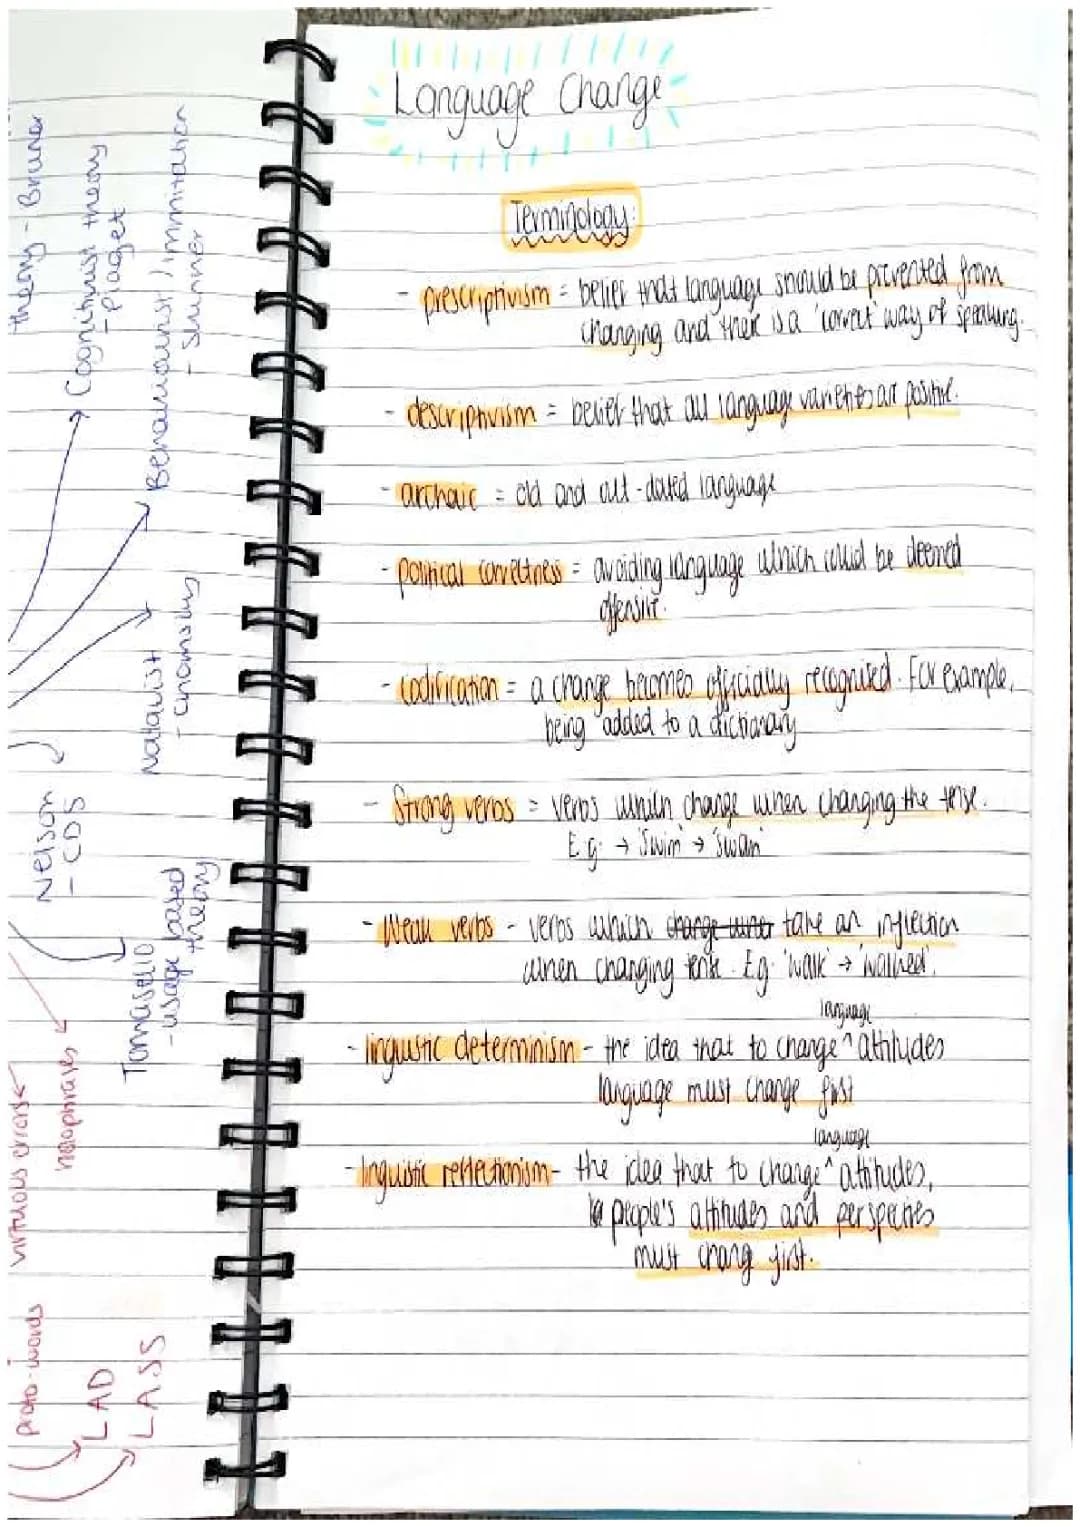 Language Change
Terminology:
- prescriptivism = belief that language should be prevented from
changing and there is a 'correct' way of speaking.
- descriptivism = belief that all language varieties are positive.
- archaic = old and out-dated language
- political correctness = avoiding language which could be deemed
offensive.
- codification = a change becomes officially recognised. For example,
being added to a dictionary
- Strong verbs = verbs which change when changing the tense.
E.g. → 'swim' → 'swam'
- Weak verbs - verbs which change when take an inflection
when changing tense. Eg. 'walk' → 'walked'.
language
- linguistic determinism - the idea that to change ^ attitudes
language must change first
language
- linguistic reflectionism - the idea that to change ^ attitudes,
people's attitudes and perspectives
must chang first.
theory - Bruner
Cognitivist theory
- Piaget
Behaviourist / immitation
- Skinner
Nativist
- Chomsky
Nelson
- CDS
Tomasello
- usage based
theory
holophrases
virtuous errors
proto-words
LAD
LASS